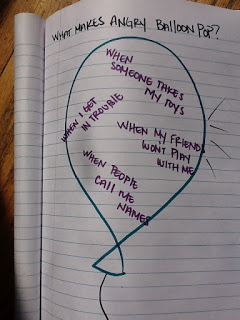 WHAT MAKES ANGRY BALLOON POP?
WHEN
SOMEONE TAKES
MY TOYS
WHEN I GET
IN TROUBLE
WHEN MY FRIENDS
WONT PLAY
WITH ME
WHEN PEOPLE
CALL ME
NAMES